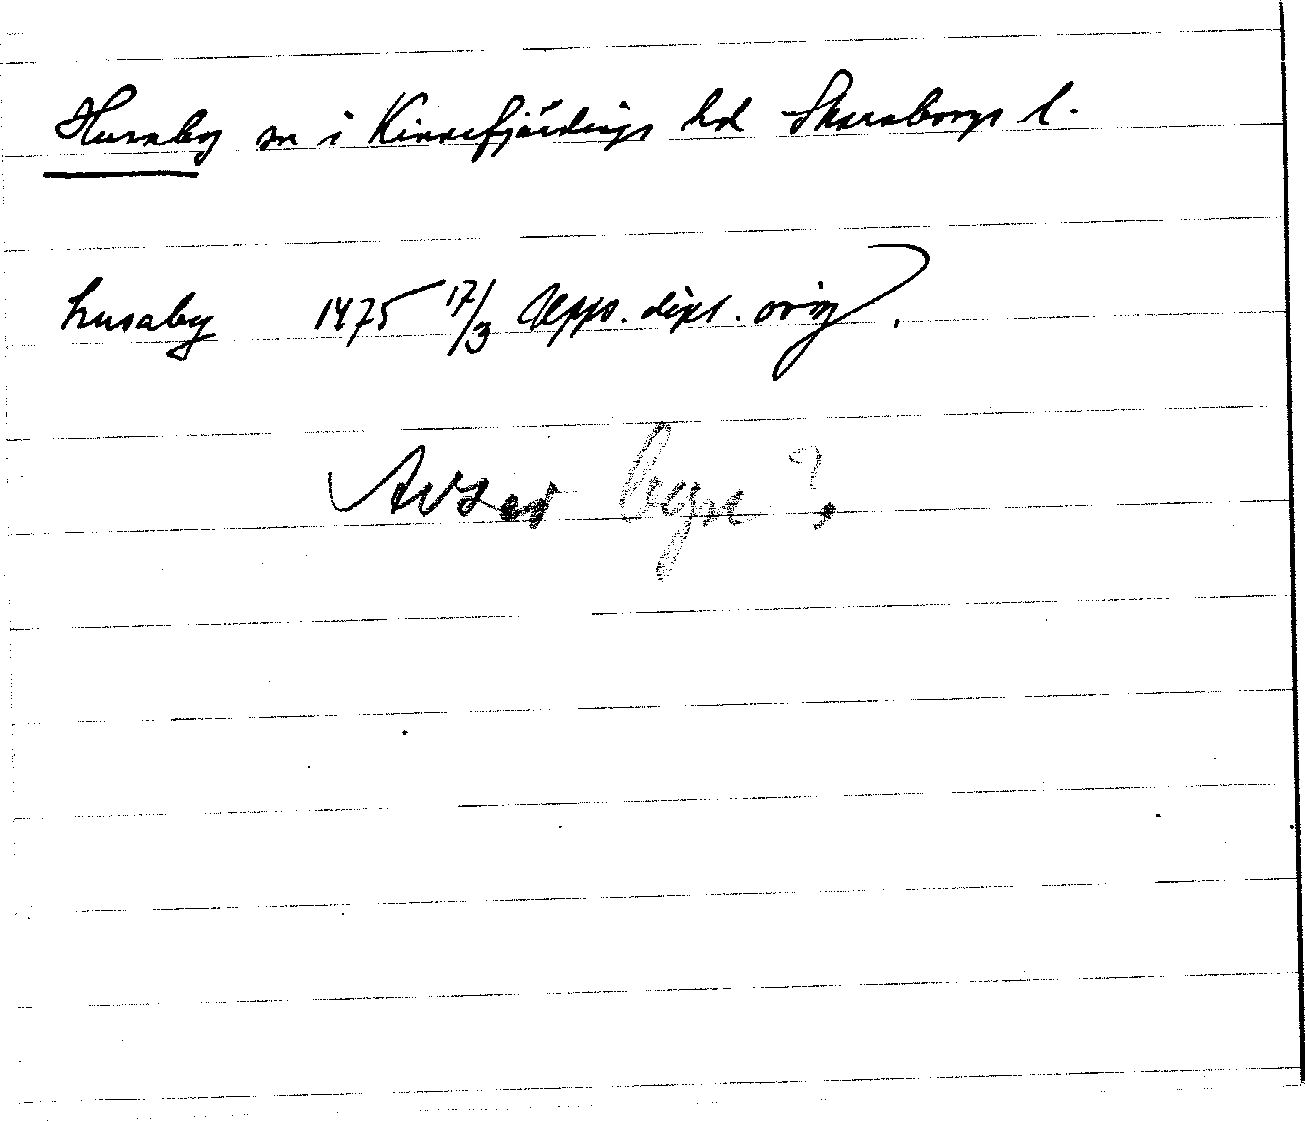 Husaby sn i Kinnefjärdings hd Skaraborgs l.
husaby 1475 17/3 Upps. dipl. orig.
Avser byn?